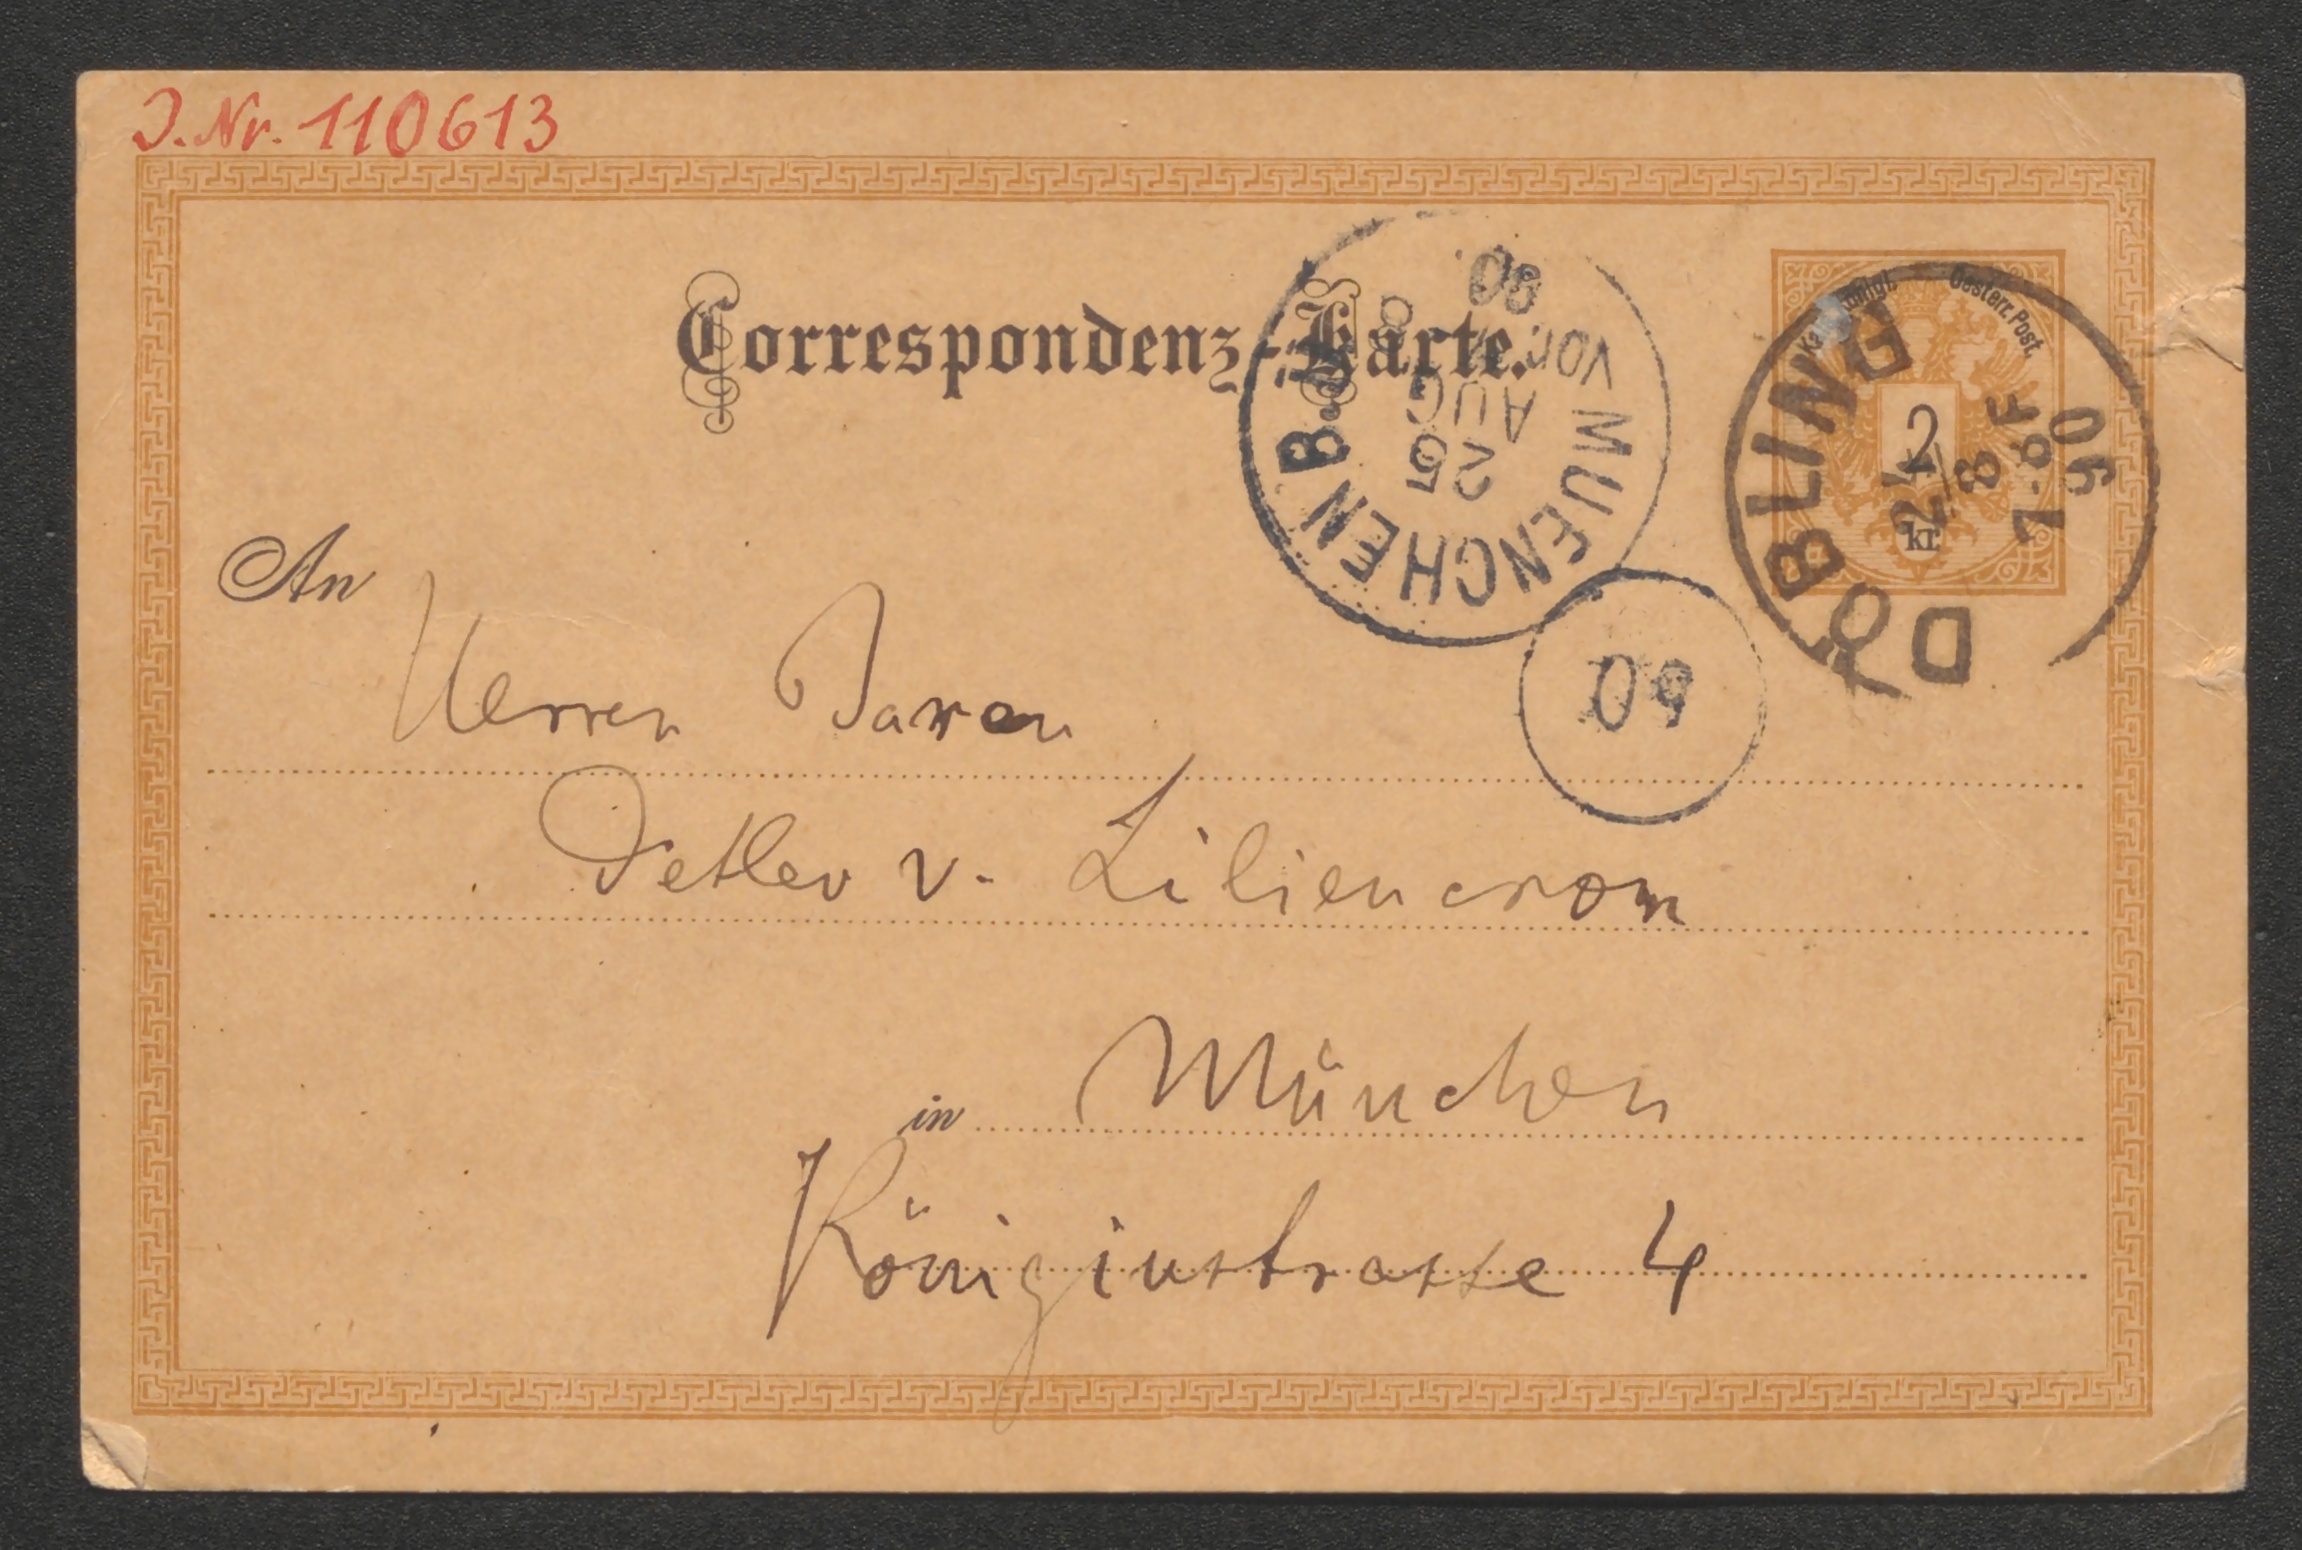 J. Nr. 110613
Correspondenz-Karte.
MUENCHEN B.
VOR.
25
AUG
8
90.
Oesterr. Post.
2
kr.
DÖBLING
8
7-8F
90
An
Herren Baron
Detlev v. Liliencron
in München
Königinstrasse 4